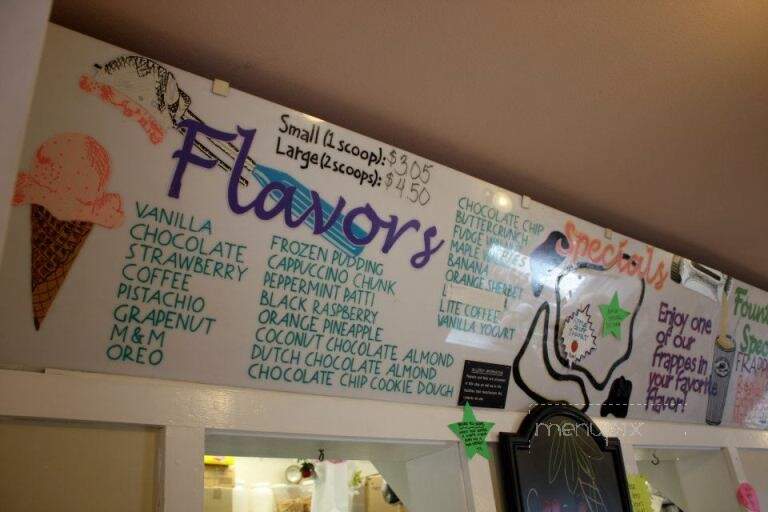 Flavors
Small (1 scoop): $3.05
Large (2 scoops): $4.50
VANILLA
CHOCOLATE
STRAWBERRY
COFFEE
PISTACHIO
GRAPENUT
M&M
OREO
FROZEN PUDDING
CAPPUCCINO CHUNK
PEPPERMINT PATTI
BLACK RASPBERRY
ORANGE PINEAPPLE
COCONUT CHOCOLATE ALMOND
DUTCH CHOCOLATE ALMOND
CHOCOLATE CHIP COOKIE DOUGH
CHOCOLATE CHIP
BUTTERCRUNCH
FUDGE
MAPLE
BANANA
ORANGE SHERBET
LITE COFFEE
VANILLA YOGURT
Specials
Enjoy one
of our
frappes in
your favorite
flavor!
menupix